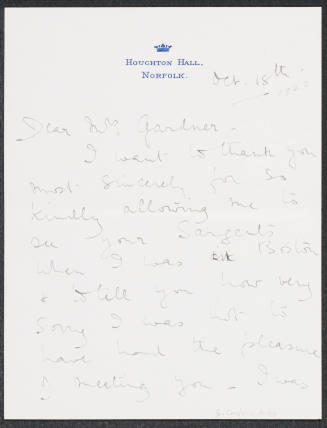 HOUGHTON HALL,
NORFOLK.
Oct. 18th
Dear Mrs. Gardner.
I want to thank you
most sincerely for so
kindly allowing me to
see your Sargents
when I was in Boston
& to tell you how very
sorry I was not to
have had the pleasure
of meeting you - I was